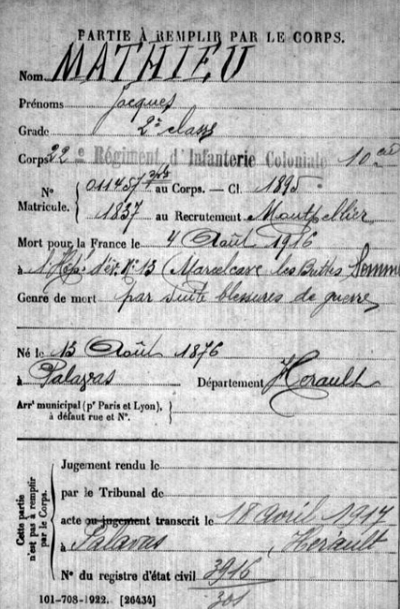 PARTIE À REMPLIR PAR LE CORPS.
Nom MATHIEU
Prénoms Jacques
Grade 2e classe
Corps 22e Régiment d'Infanterie Coloniale 10e
N° 011457 au Corps. — Cl. 1895
Matricule. 1837 au Recrutement Montpellier
Mort pour la France le 4 Août 1916
à l'Hôp. d'év. N° 13 Marcelcave les Buttes Somme
Genre de mort par suite blessures de guerre
Né le 13 Août 1876
à Palavas Département Hérault
Arrt municipal (pr Paris et Lyon),
à défaut rue et N°.
Cette partie
n'est pas à remplir
par le Corps.
Jugement rendu le
par le Tribunal de
acte ou jugement transcrit le 18 avril 1917
à Palavas Hérault
N° du registre d'état civil 3916
301
101-708-1922. [26434]